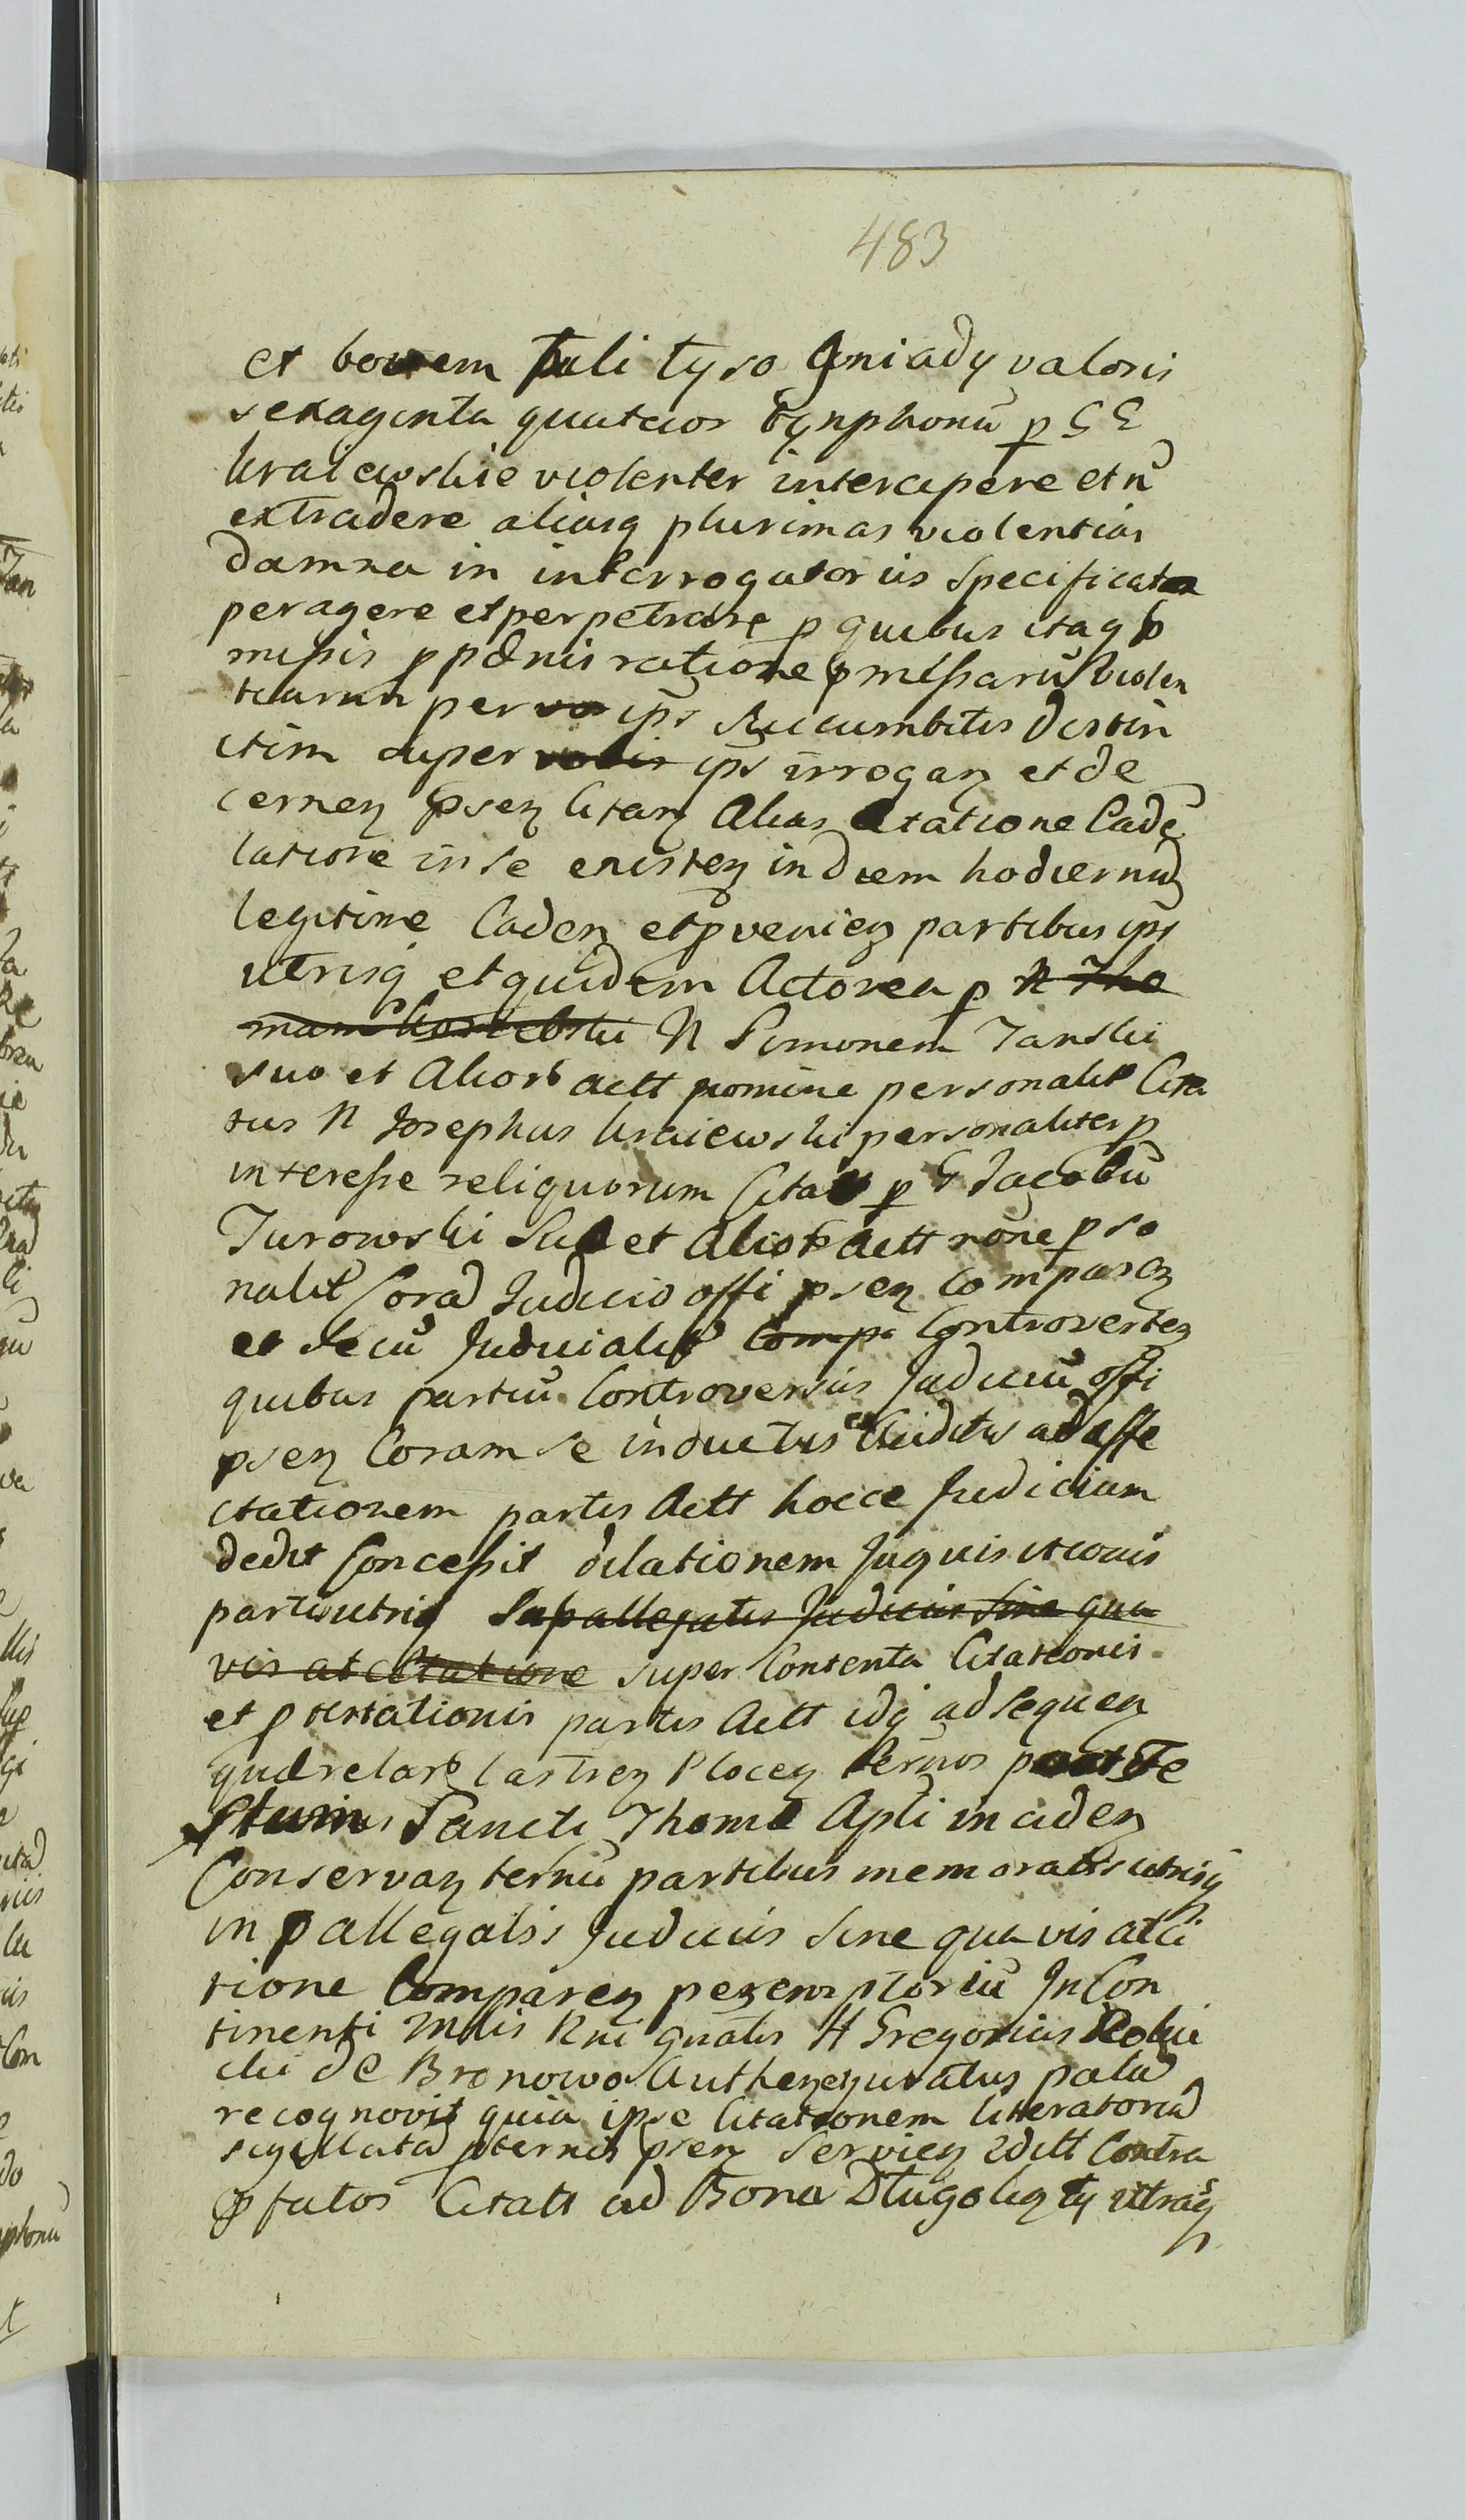 483
et bovem puli tyso Gniady valoris
sexaginta quatuor tynphonū p GG
Kraiewskie violenter intercipere et n̄
extradere aliasq plurimas violentias
damna in interrogatoriis specificata
peragere et perpetrare p quibus itaq p
missis p pænis ratione pmissarū violen
tiarum per vos ips succumbitis distin
ctim super vobis ips irrogan et de
cernen psen Citan Alias Citatione Cade
latiore in se existen in diem hodiernū
legitime Caden et pvenien partibus ips
utrisq et quidem Actorea p N Tho
mam N Simonem Janski
suo et Alior actt nomine personalit Cita
tus N Josephus Kraiewski personaliter p
interesse reliquorum Citatt p G Jacobū
Turowski Suo et Alior actt rone pso
nalit Corā Judicio offi psen Comparen
et secū Judicialit Comp Controverten
quibus partiū Controversiis Judiciū offi
psen Coram se inductis et Auditis ad affe
ctationem partis Actt hocce Judicium
dedit Concessit dilationem Inquisitionis
parti utriq Sup allegatis Judiciis Sine qua
vis atcitatione super Contenta Citationis
et ptestationis partis Actt idq ad sequen
querelar Castren Plocen termos post Fe
stum Sancti Thomæ Apli in iciden
Conservan ternū partibus memoratis utrisq
in p allegatis Judiciis Sine qua vis atci
tione Comparen peremptoriū In Con
tinenti Mtlis Rni gnalis H Gregorius
de Bronowo Authen juratus palā
recognovit quia ipse Citationem literatoriā
sigillatā pternis psen servien Editt Contra
pfatos Citatt ad Bona Długołęnty uttraq